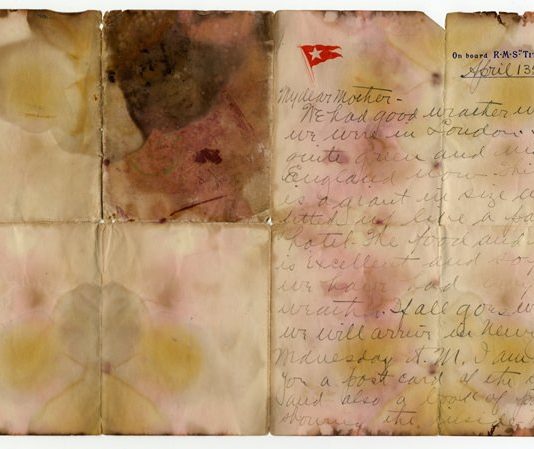 On board R·M·S·"Ti
April 13
My dear Mother-
We had good weather w
we were in London.
quite green and
England now. This
is a giant in size
fitted up like a
hotel. The food and
is excellent and
we have had
weather. If all goes w
we will arrive in New
Wednesday A.M. I am
you a post card of the
and also a book of
showing the